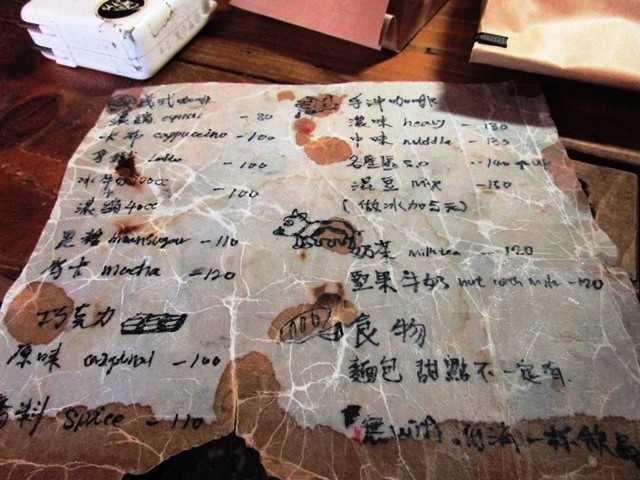 義式咖啡
濃縮 -80
卡布 cappuccino -100
拿鐵 latte -100
冰牛奶 -100
濃縮40cc
黑糖 brownsugar -110
摩卡 mocha -120
巧克力
原味 -100
香料 Spice -110
手沖咖啡
濃味 heavy -130
中味 middle -130
名產區 S.O -140
混豆 mix -130
(做冰加5元)
奶茶 milk tea -120
堅果牛奶 nut milk -120
食物
麵包 甜點不一定有.
無wifi. 低消一杯飲品